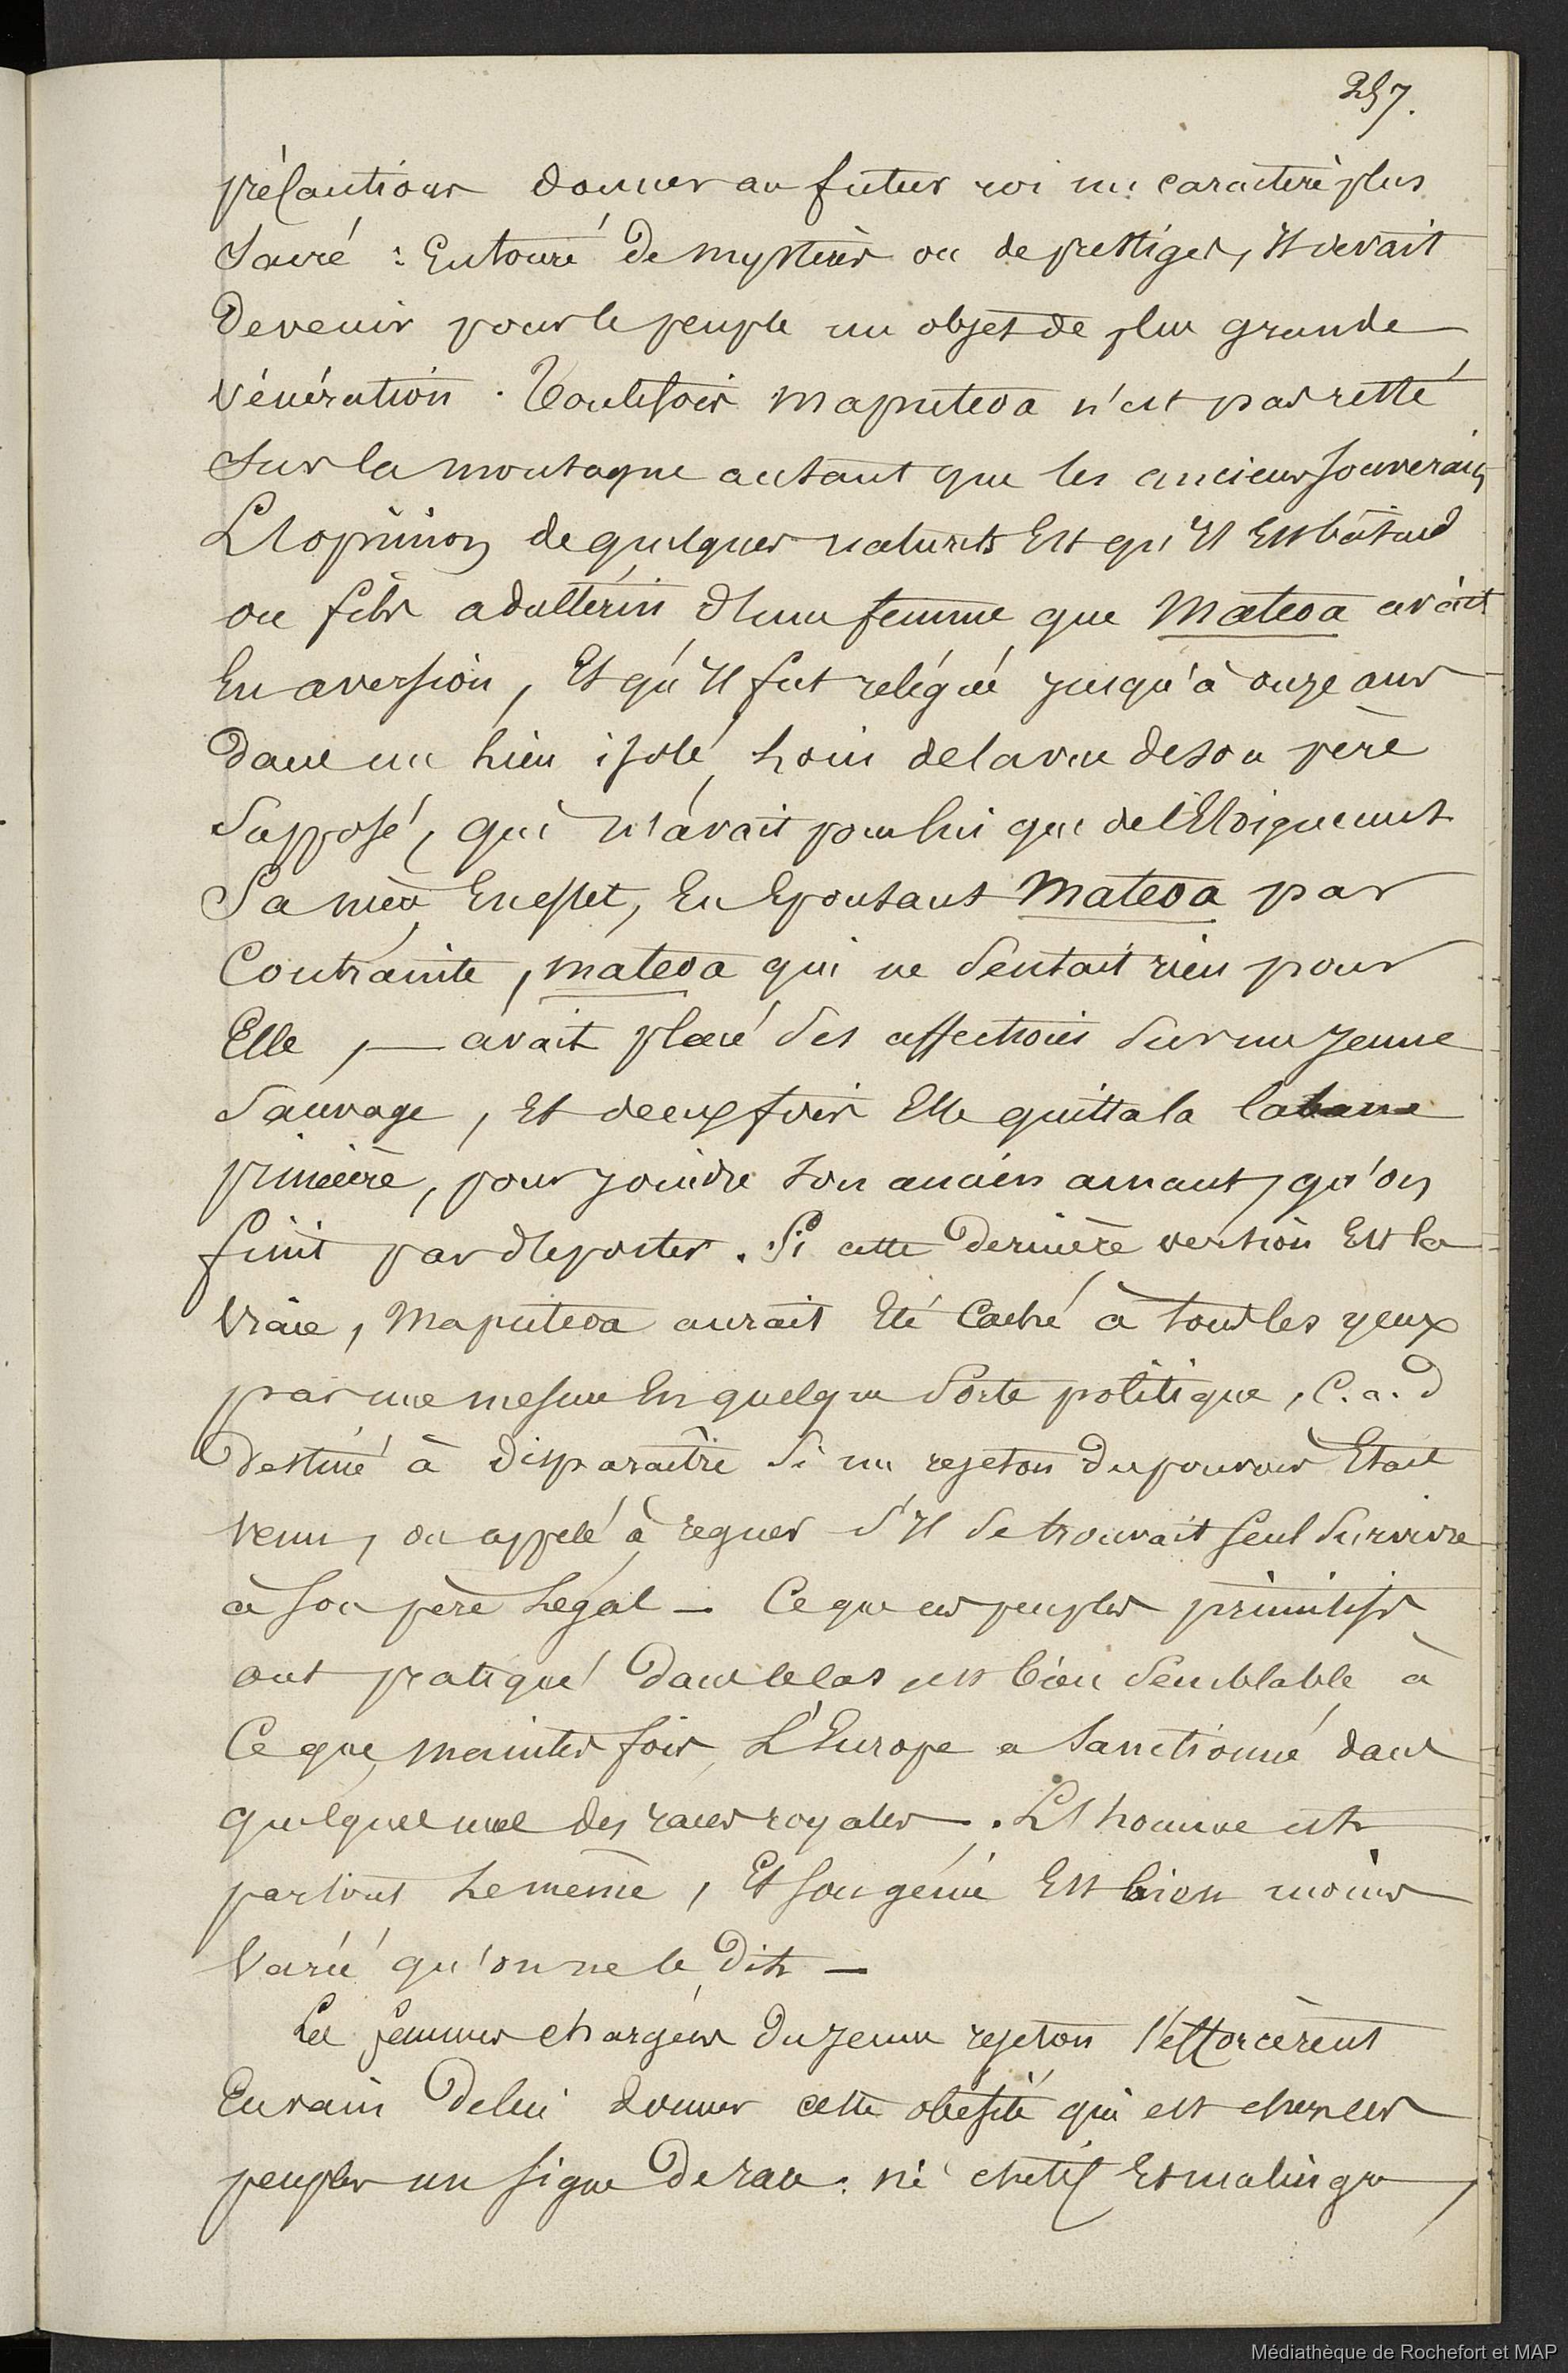 257.
précautions donner au futur roi un caractère plus
sacré : Entouré de mystères ou de prestiges, Il devait
devenir pour le peuple un objet de plus grande
vénération. Toutefois Maputeoa n'est pas resté
sur la montagne autant que les anciens souverains
L'opinion de quelques naturels Est qu'Il Est bâtard
ou fils adultérin d'une femme que Mateoa avait
En aversion, Et qu'Il fut relégué jusqu'à onze ans
dans un lieu isolé, Loin de la vue de son père
supposé, qui n'avait pour lui que de l'Eloignement
Sa mère, En effet, En Epousant Mateoa par
Contrainte, Mateoa qui ne sentait rien pour
Elle, — avait placé ses affections sur un jeune
sauvage, Et deux fois Elle quitta la cabane
princière, pour joindre son ancien amant, qu'on
finit par déporter. Si cette dernière version Est la
Vraie, Maputeoa aurait Eté Caché à tous les yeux
par une mesure En quelque sorte politique, C. a. d
destiné à disparaître si un rejeton du pouvoir Etait
venu, ou appelé à régner s'Il se trouvait seul survivre
à son père Légal — Ce que ces peuples primitifs
ont pratiqué dans le cas est bien semblable à
Ce que, maintes fois, L'Europe a sanctionné dans
quelques unes des races royales. L'homme est
partout Le même, Et son génie Est bien moins
Varié qu'on ne le dit —
Les femmes chargées du jeune rejeton s'efforcèrent
En vain de lui donner cette obésité qui est chez ces
peuples un signe de race : né chétif Et malingre,
Médiathèque de Rochefort et MAP